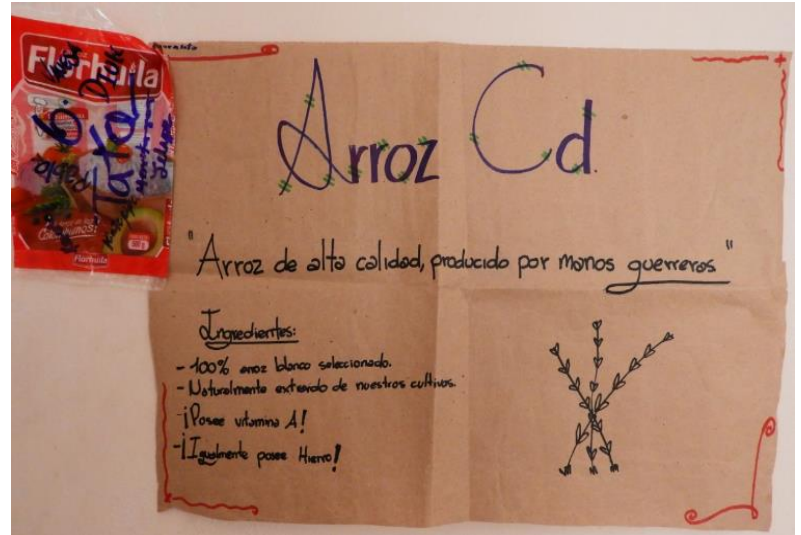 Florhuila
Tata
Arroz Cd
"Arroz de alta calidad, producido por manos guerreras"
Ingredientes:
- 100% arroz blanco seleccionado.
- Naturalmente extraido de nuestros cultivos.
¡Posee vitamina A!
-¡Igualmente posee Hierro!
Florhuila